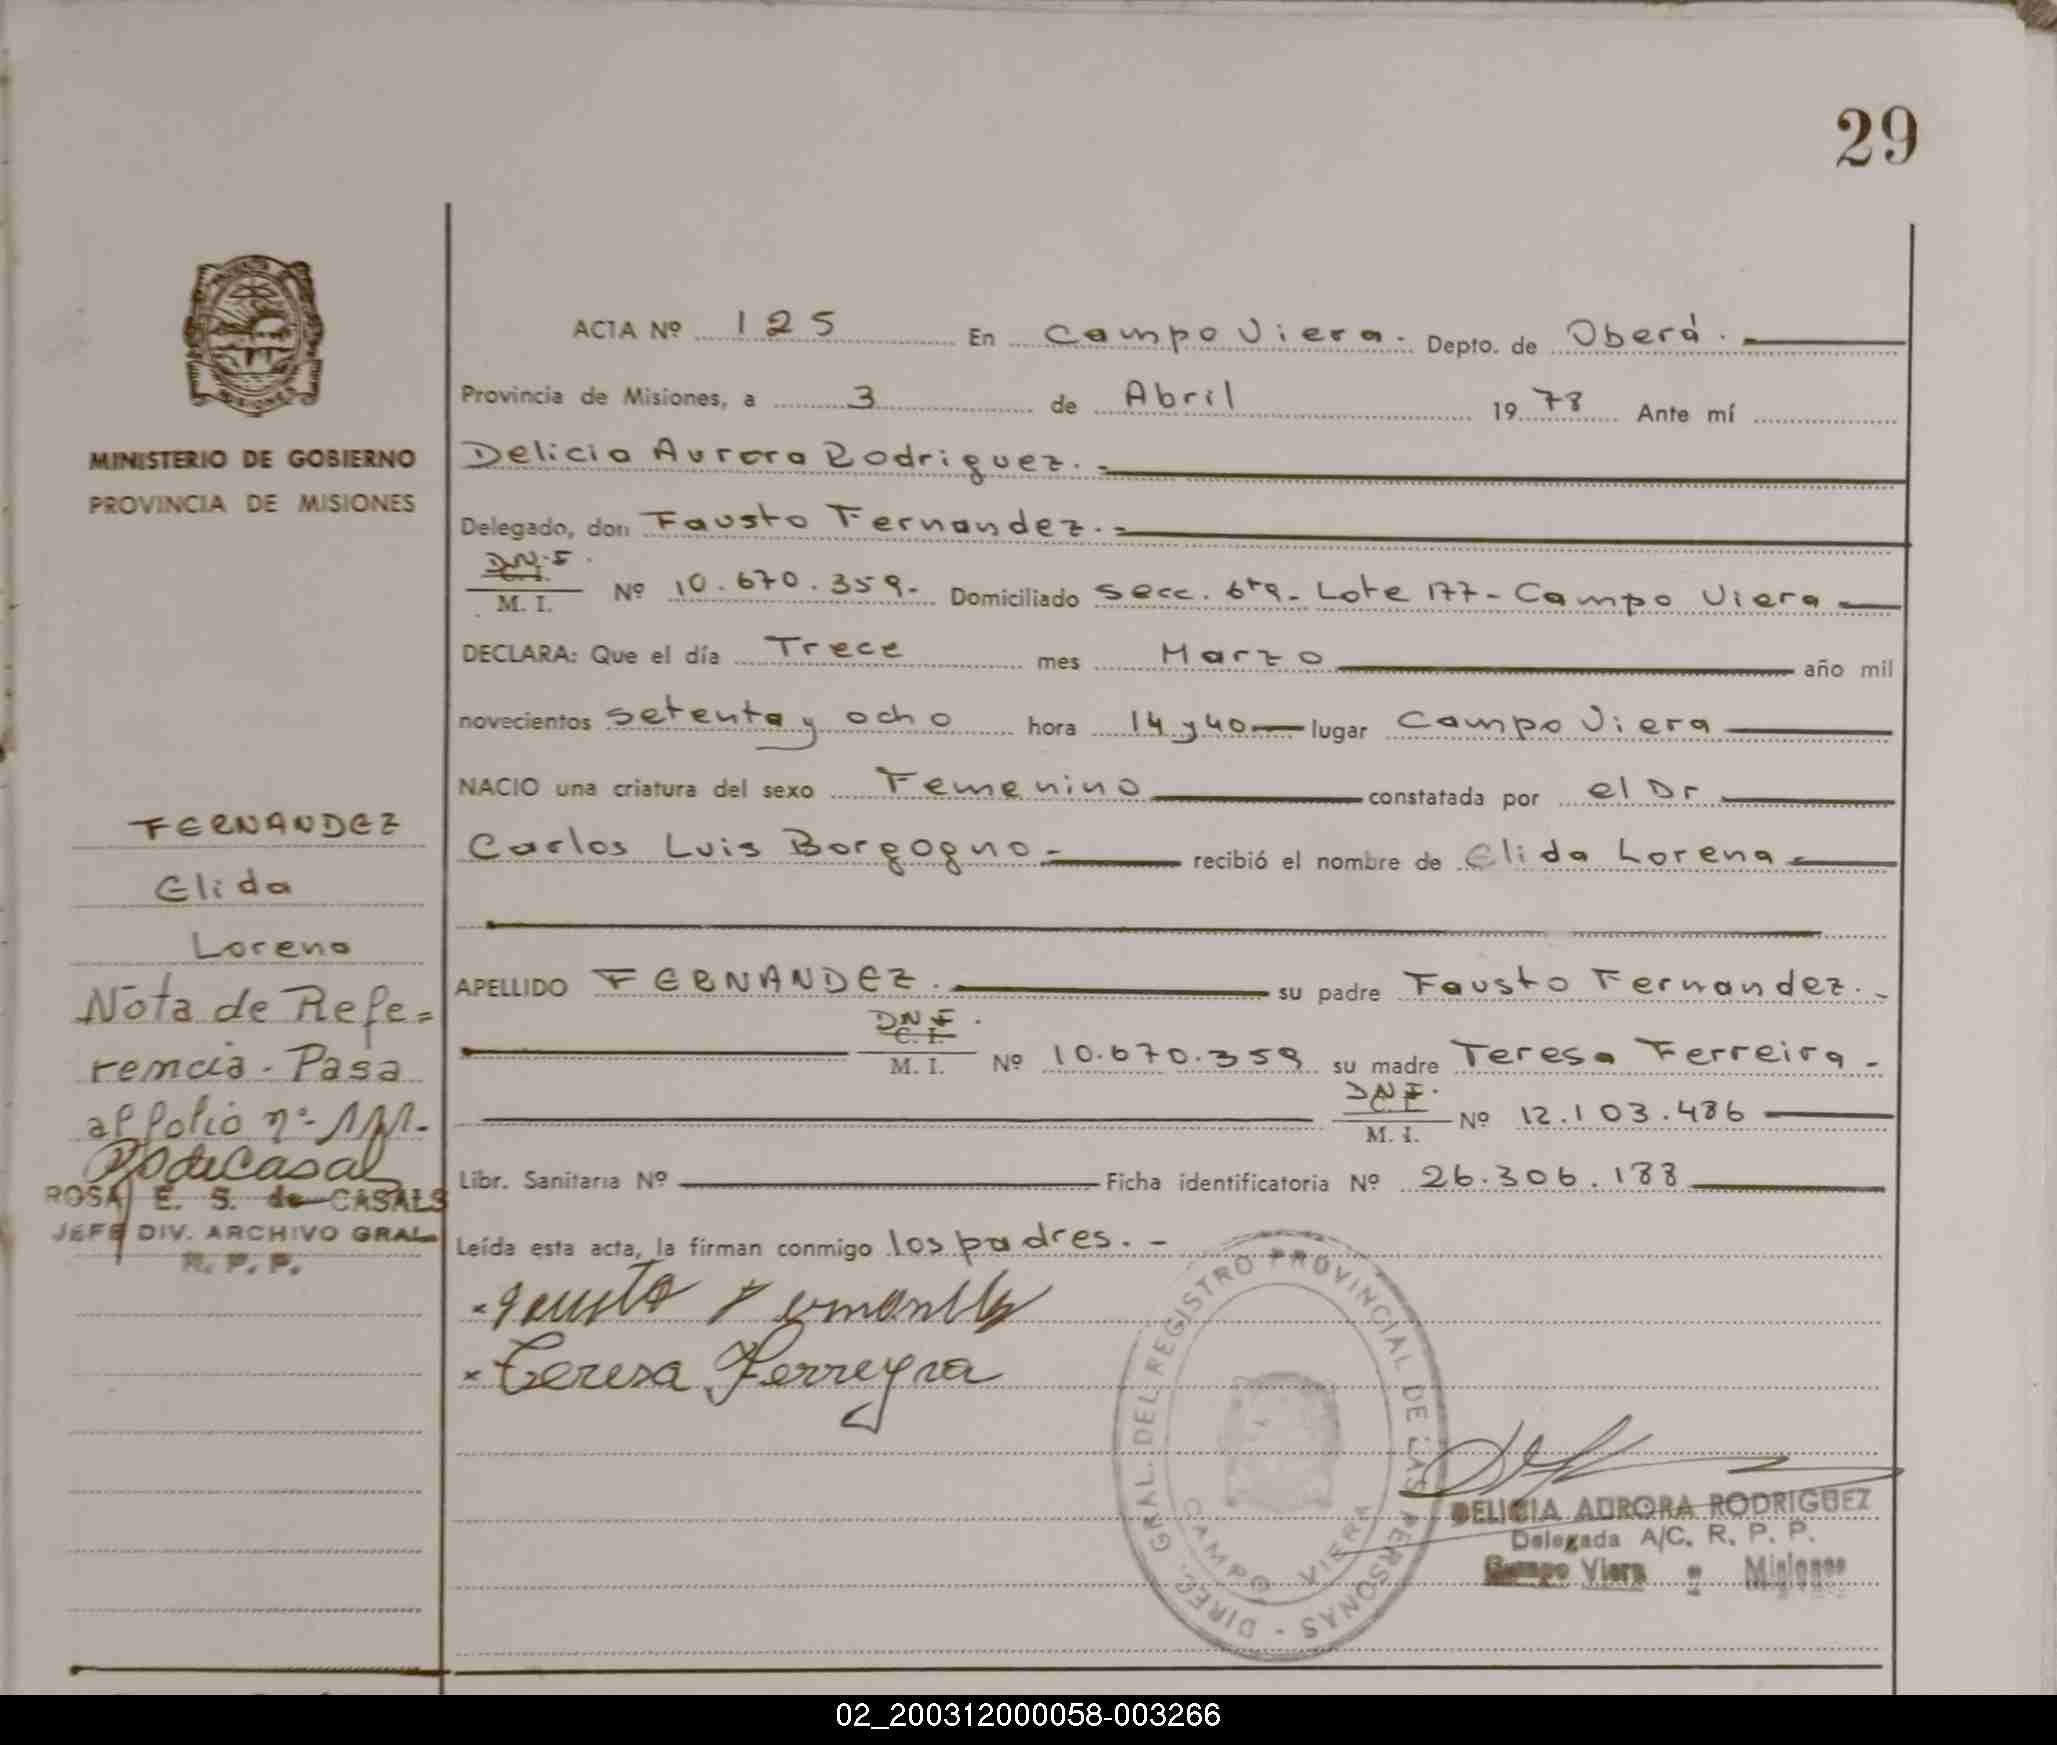 29
MINISTERIO DE GOBIERNO
PROVINCIA DE MISIONES
FERNANDEZ
Elida
Lorena
Nota de Refe=
rencia - Pasa
al folio nº
ROSA E. S. de CASALS
JEFE DIV. ARCHIVO GRAL
R. P. P.
ACTA Nº 125 En Campo Viera. Depto. de Oberá.
Provincia de Misiones, a 3 de Abril 19 78 Ante mí
Delicia Aurora Rodriguez.-
Delegado, don Fausto Fernandez.-
D.N.I.
C.I.
M. I. Nº 10.670.359- Domiciliado Secc. 6ta- Lote 177- Campo Viera
DECLARA: Que el día Trece mes Marzo año mil
novecientos setenta y ocho hora 14 y 40 lugar Campo Viera
NACIO una criatura del sexo Femenino constatada por el Dr
Carlos Luis Borgogno- recibió el nombre de Elida Lorena-
APELLIDO FERNANDEZ. su padre Fausto Fernandez.-
DNI.
C. I.
M. I. Nº 10.670.359 su madre Teresa Ferreira-
DNI.
C. I.
M. I. Nº 12.103.486
Libr. Sanitaria Nº Ficha identificatoria Nº 26.306.188
Leída esta acta, la firman conmigo los padres.-
Fausto Fernandez
Teresa Ferreyra
DIREC. GRAL. DEL REGISTRO PROVINCIAL DE LAS PERSONAS -
CAMPO VIERA
DELICIA AURORA RODRIGUEZ
Delegada A/C. R. P. P.
Campo Viera - Misiones
02_200312000058-003266